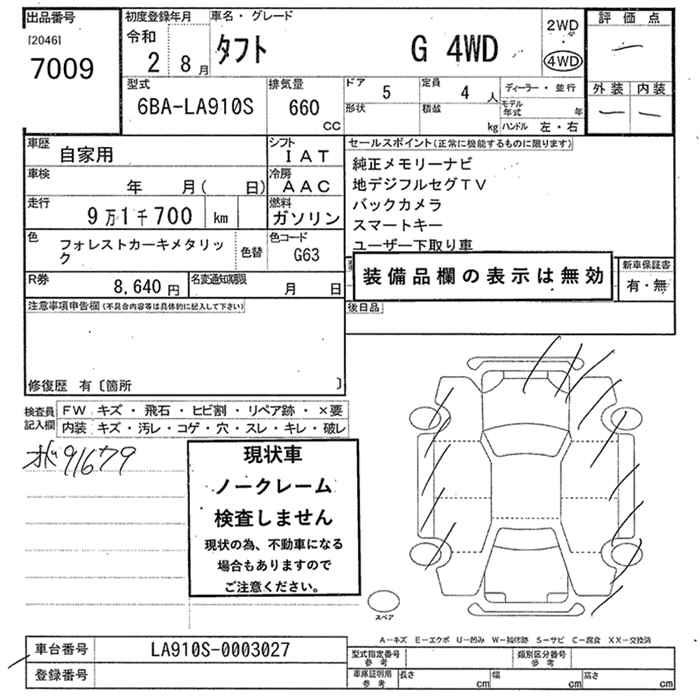 出品番号
[2046]
7009
初度登録年月
令和
2 8月
車名・グレード
タフト G 4WD
2WD
4WD
評価点
外装 内装
型式
6BA-LA910S
排気量
660
CC
ドア 5
定員 4 人
形状
積載
kg
ディーラー・並行
モデル年式 年
ハンドル 左・右
車歴
自家用
シフト
IAT
車検
年 月( 日)
冷房
AAC
走行
9万1千700 km
燃料
ガソリン
色
フォレストカーキメタリック
色替
色コード
G63
R券
8,640円
名変通知期限
月 日
セールスポイント(正常に機能するものに限ります)
純正メモリーナビ
地デジフルセグTV
バックカメラ
スマートキー
ユーザー下取り車
装備品欄の表示は無効
新車保証書
有・無
注意事項申告欄(不具合内容等は具体的に記入して下さい)
後日品
修復歴 有〔箇所 〕
検査員記入欄
FW キズ・飛石・ヒビ割・リペア跡・×要
内装 キズ・汚レ・コゲ・穴・スレ・キレ・破レ
91679
現状車
ノークレーム
検査しません
現状の為、不動車になる
場合もありますので
ご注意ください。
スペア
A-キズ E-エクボ U-凹み W-補修跡 S-サビ C-腐食 XX-交換済
車台番号
LA910S-0003027
登録番号
型式指定番号
参考
類別区分番号
参考
車庫証明用
参考
長さ cm
幅 cm
高さ cm